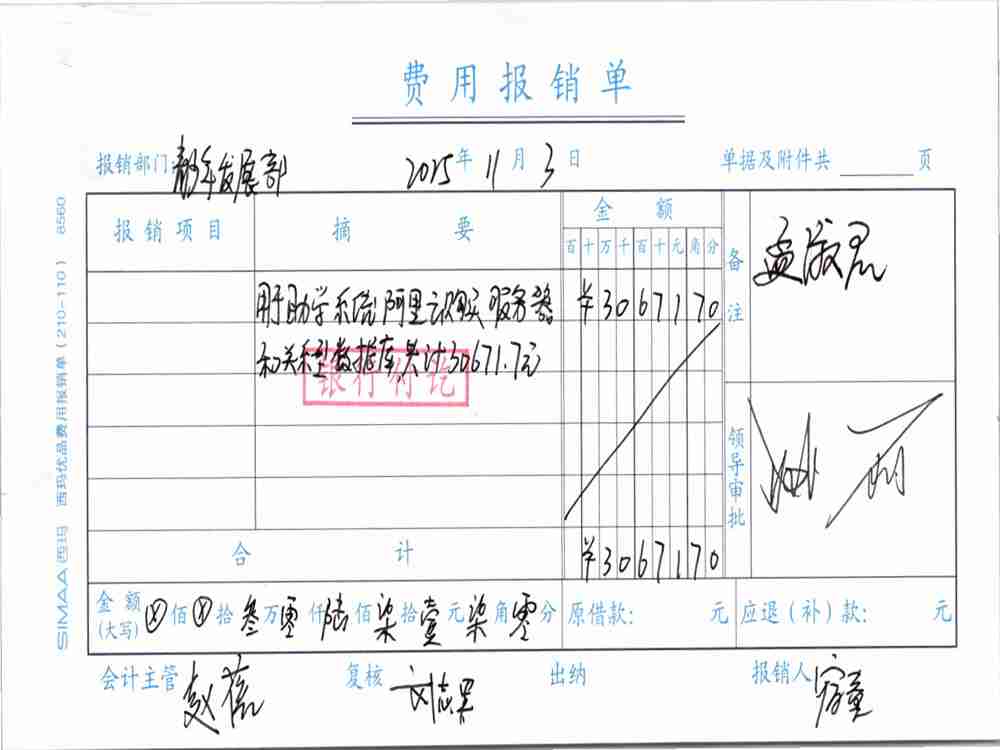 费用报销单
报销部门: 青年发展部 2015年11月3日 单据及附件共 页
报销项目 摘要 金额 备注
百十万千百十元角分
孟淑君
用于助学系统阿里云购买服务器 ¥3067170
和关系型数据库共计30671.7元
银行付讫
领导审批
合计 ¥3067170
金额(大写) ⊗佰⊗拾叁万零仟陆佰柒拾壹元柒角零分 原借款: 元 应退(补)款: 元
会计主管 赵蓓 复核 刘志军 出纳 报销人
SIMAA西玛 西玛优品费用报销单(210-110) 8560